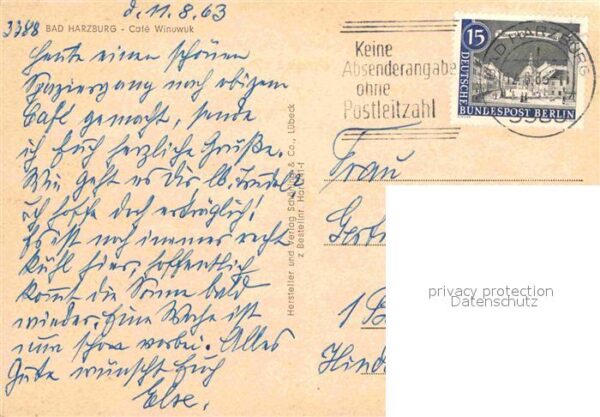 d. 11.8.63
3388 BAD HARZBURG - Café Winuwuk
Heute einen schönen
Spaziergang nach obigem
Café gemacht, sende
ich Euch herzliche Grüße.
Wie geht es Dir lb. Trudel?
ich hoffe doch erträglich!
Es ist noch immer recht
kühl hier, hoffentlich
kommt die Sonne bald
wieder. Eine Woche ist
nun schon vorbei. Alles
Gute wünscht Euch
Else.
Hersteller und Verlag & Co., Lübeck
z Bestellnr.
Keine
Absenderangabe
ohne
Postleitzahl
BAD HARZBURG
15
DEUTSCHE
BUNDESPOST BERLIN
Frau
1
privacy protection
Datenschutz